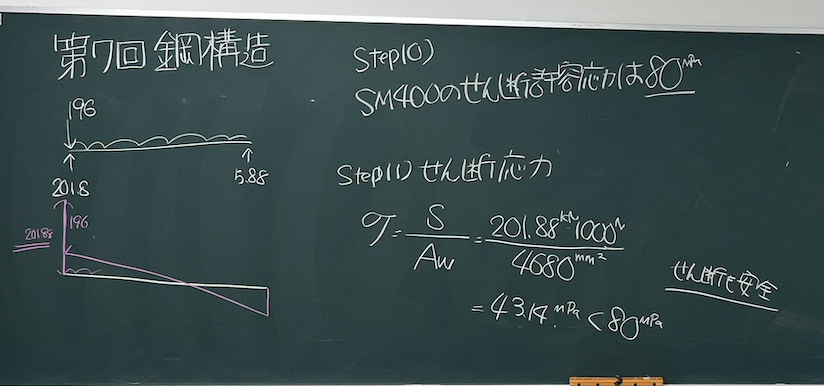 第7回鋼構造
196
201.8
5.88
201.88
196
Step(0)
SM400のせん断許容応力は80MPa
Step(1)せん断応力
τ=S/Aw=201.88kN 1000N/4680mm²
=43.14MPa<80MPa
せん断は安全